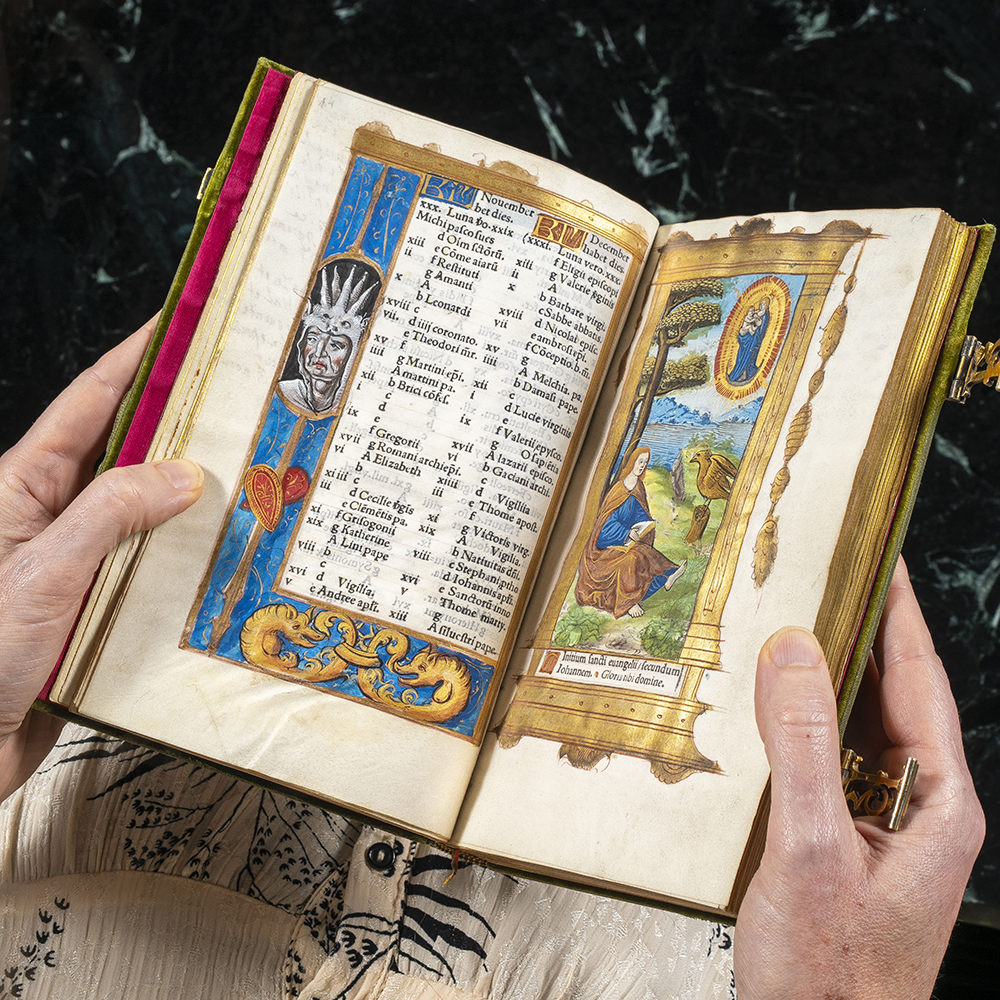 KL
Nouember
bet dies.
xxx. Luna vo. xxix
Michi pasco sues
d Oīm sctōrū.
xiii e Cōme aiarū
ii f Restituti
g Amanti
x A
b Leonardi
xviii c
vii. d iiij coronato.
e Theodori m̄r.
xv f
iiii g Martini ep̄i.
A martini pa.
xii b Brici cōfs.
i c
d
ix e
f Gregorii
xvii g Romani archiep̄i.
vi A Elizabeth
b
xiiii c
iii d Cecilie v̄gis
e Clemētis pa.
xi f Grisogonii
xix g Katherine
A Lini pape
viii b
c
xvi d Vigilia,
v e Andree apsī.
KL
December
habet dies.
xxxi. Luna vero. xxx.
f Eligii episcopi
xiii g Valerie v̄ginis
ii A
x b Barbare virgi.
c Sabbe abbatis.
xviii d Nicolai episc.
vii e ambrosi ep̄i.
f Cōceptio. b. m̄.
xv g
iiii A Melchia. pa.
b Damasi pape
xii c
i d Lucie virginis
e
ix f Valerii epysco.
g O sapiētia
xvii A lazarii episco.
vi b Gaciani archi.
c
xiiii d Vigiliia
iii e Thome apost.
f
xi g Victoris virg.
xix A Vigilia.
b Natiuitas dn̄i.
viii c Stephani ptho
d Iohannis apsī.
xvi e Sanctorū inno
v f Thome marty.
g
xiii A siluestri pape.
Initium sancti euangelii / secundum
Iohannem. Gloria tibi domine.